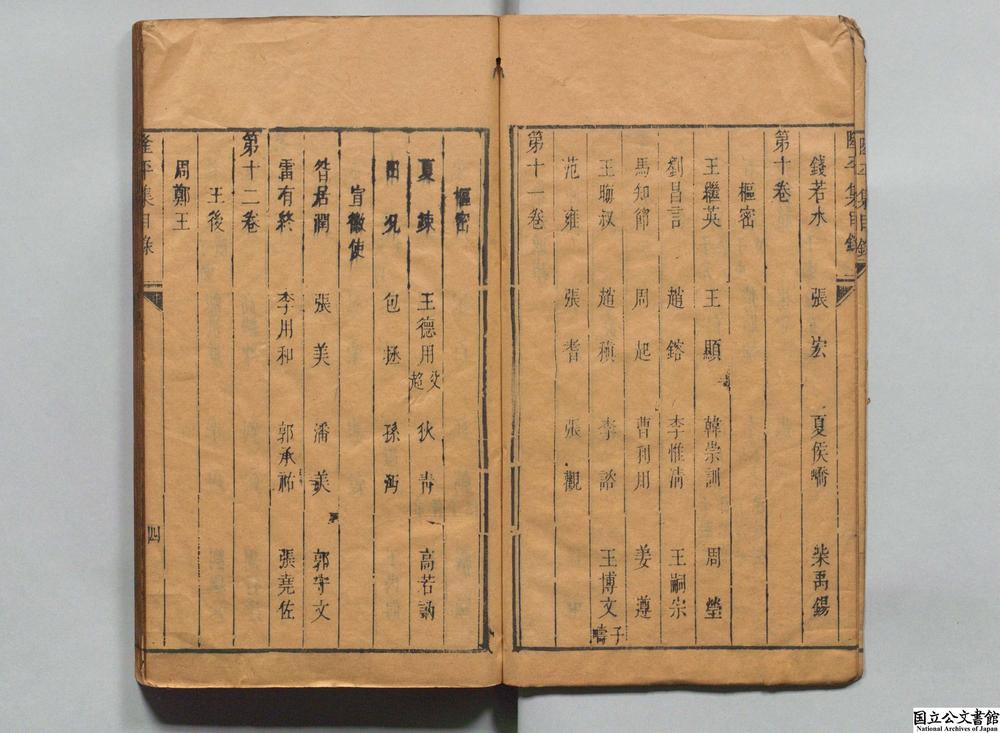 隆平集目錄
錢若水 張宏 夏侯嶠 柴禹錫
第十卷
樞密
王繼英 王顯 韓崇訓 周瑩
劉昌言 趙鎔 李惟清 王嗣宗
馬知節 周起 曹利用 姜遵
王疇叔 趙稹 李諮 王博文 子疇
范雍 張耆 張觀
第十一卷
樞密
夏竦 王德用 父超 狄青 高若訥
田況 包拯 孫沔
宣徽使
昝居潤 張美 潘美 郭守文
雷有終 李用和 郭承祐 張堯佐
第十二卷
王後
周鄭王
隆平集目錄
四
国立公文書館
National Archives of Japan